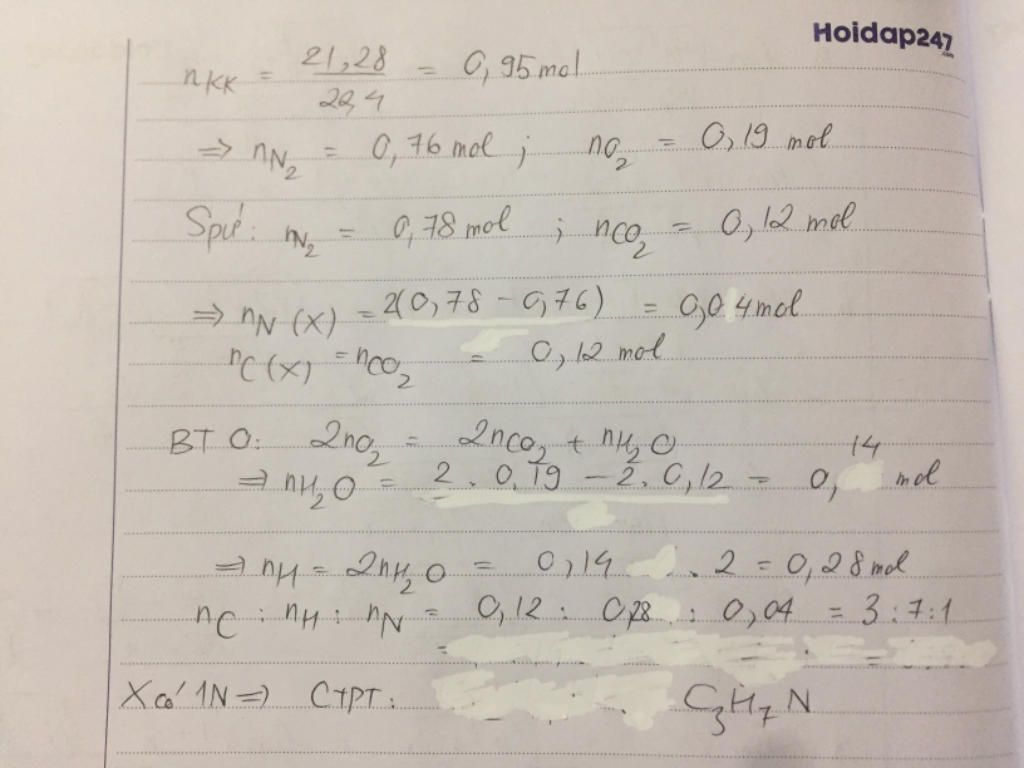 Hoidap247.com
nKK = 21,28/22,4 = 0,95 mol
⇒ nN₂ = 0,76 mol ; nO₂ = 0,19 mol
Spư: nN₂ = 0,78 mol ; nCO₂ = 0,12 mol
⇒ nN (X) = 2(0,78 - 0,76) = 0,04 mol
nC (X) = nCO₂ = 0,12 mol
BT O: 2nO₂ = 2nCO₂ + nH₂O
⇒ nH₂O = 2 . 0,19 - 2. 0,12 = 0,14 mol
⇒ nH = 2nH₂O = 0,14 . 2 = 0,28 mol
nC : nH : nN = 0,12 : 0,28 : 0,04 = 3 : 7 : 1
X có 1N ⇒ CTPT: C₃H₇N